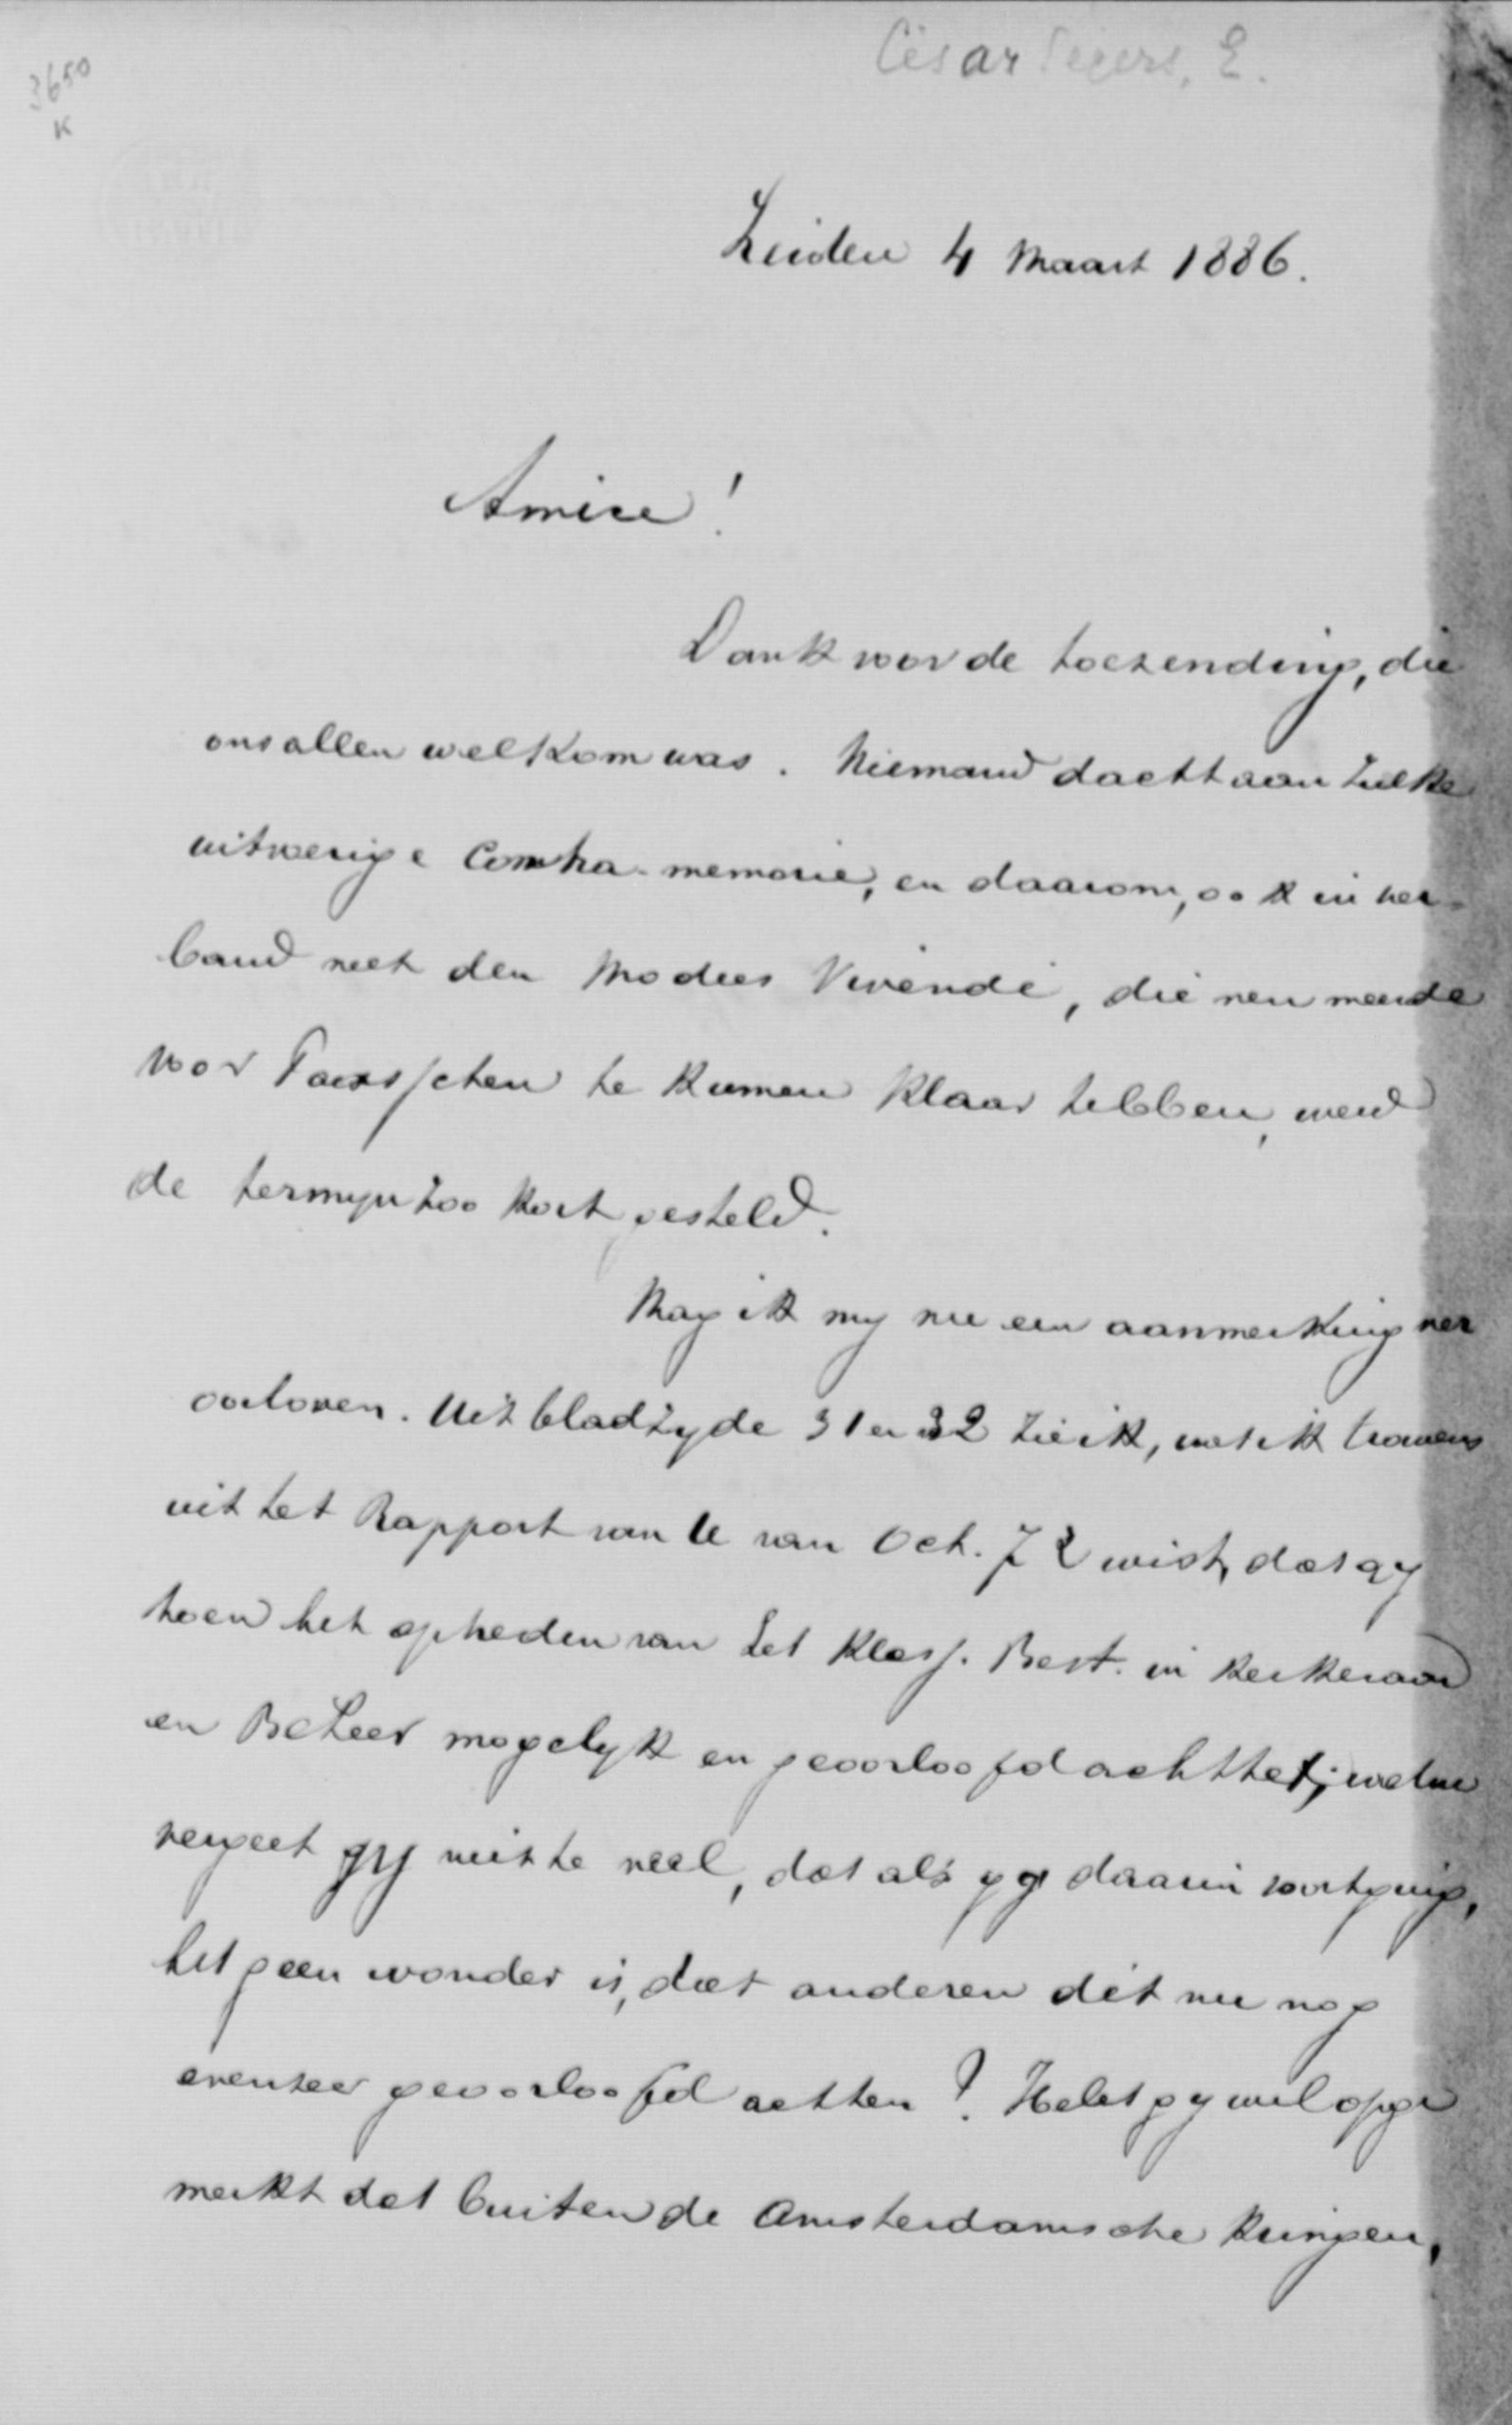 3650
K
César Segers, E.
Leiden 4 Maart 1886.
Amice!
Dank voor de toezending, die
ons allen welkom was. Niemand dacht aan zulke
uitvoerige Contra-memorie, en daarom, ook in ver-
band met den Modus Vivendi, die men meende
voor Paasschen te kunnen klaar hebben, werd
de termyn zoo kort gesteld.
Mag ik my nu een aanmerking ver
oorloven. Uit bladzyde 31 en 32 zie ik, wat ik trouwens
uit het Rapport van U van Oct. 72 wist, dat gy
toen het optreden van het Klass. Best. in kerkeraad
en Beheer mogelyk en geoorloofd achttet; welnu
vergeet gy niet te veel, dat als gy daarin voortging,
het geen wonder is, dat anderen dit nu nog
evenzeer geoorloofd achten? Hebt gy wel opge
merkt dat buiten de Amsterdamsche kringen,